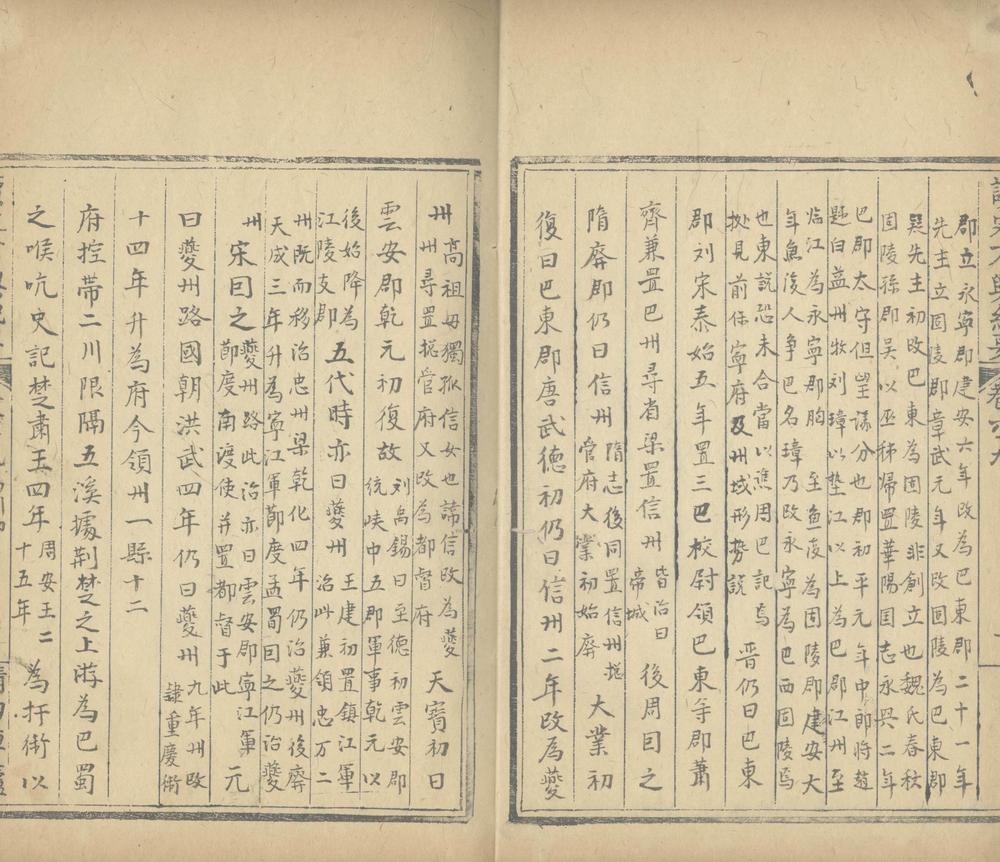 郡立永寧郡建安六年改為巴東郡二十一年
先主立固陵郡章武元年又改固陵為巴東郡
吳先主初改巴東為固陵非創立也魏氏春秋
固陵孫郡吳以巫秭歸置華陽国志永興二年
巴郡太守但望議分也郡初平元年中郎將趙
題白益州牧刘璋以墊江以上為巴郡江州至
臨江為永寧郡朐至魚復為固陵郡建安六
年魚復人争巴名璋乃改永寧為巴西固陵為
也東說恐未合當以譙周巴記為
據見前保寧府及州域形勢說
晉仍曰巴東
郡刘宋泰始五年置三巴校尉領巴東等郡蕭
齊兼置巴州尋省梁置信州
皆治白
帝城
後周因之
隋廢郡仍曰信州
隋志後同置信州揔
管府大業初始廢
大業初
復曰巴東郡唐武德初仍曰信州二年改為夔
州
高祖母獨孤信女也諦信改為夔
州尋置揔管府又改為都督府
天寶初曰
雲安郡乾元初復故
刘禹錫曰至德初雲安郡
統峡中五郡軍事乾元以
後始降為
江陵支郡
五代時亦曰夔州
王建初置鎮江軍
治此兼領忠万二
州既而移治忠州梁乾化四年仍治夔州後廢
天成三年升為寧江軍節度孟蜀因之仍治夔
州
宋因之
夔州路此治亦曰雲安郡寧江軍
節度南渡使并置都督于此
元
曰夔州路國朝洪武四年仍曰夔州
九年州改
隸重慶衛
十四年升為府今領州一縣十二
府控帶二川限隔五溪據荆楚之上游為巴蜀
之喉吭史記楚肅王四年
周安王二
十五年
為扞衛以